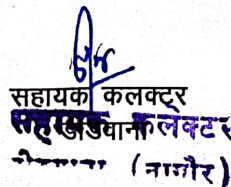 सहायक कलक्टर
सहायक कलक्टर
डीडवाना
(नागौर)